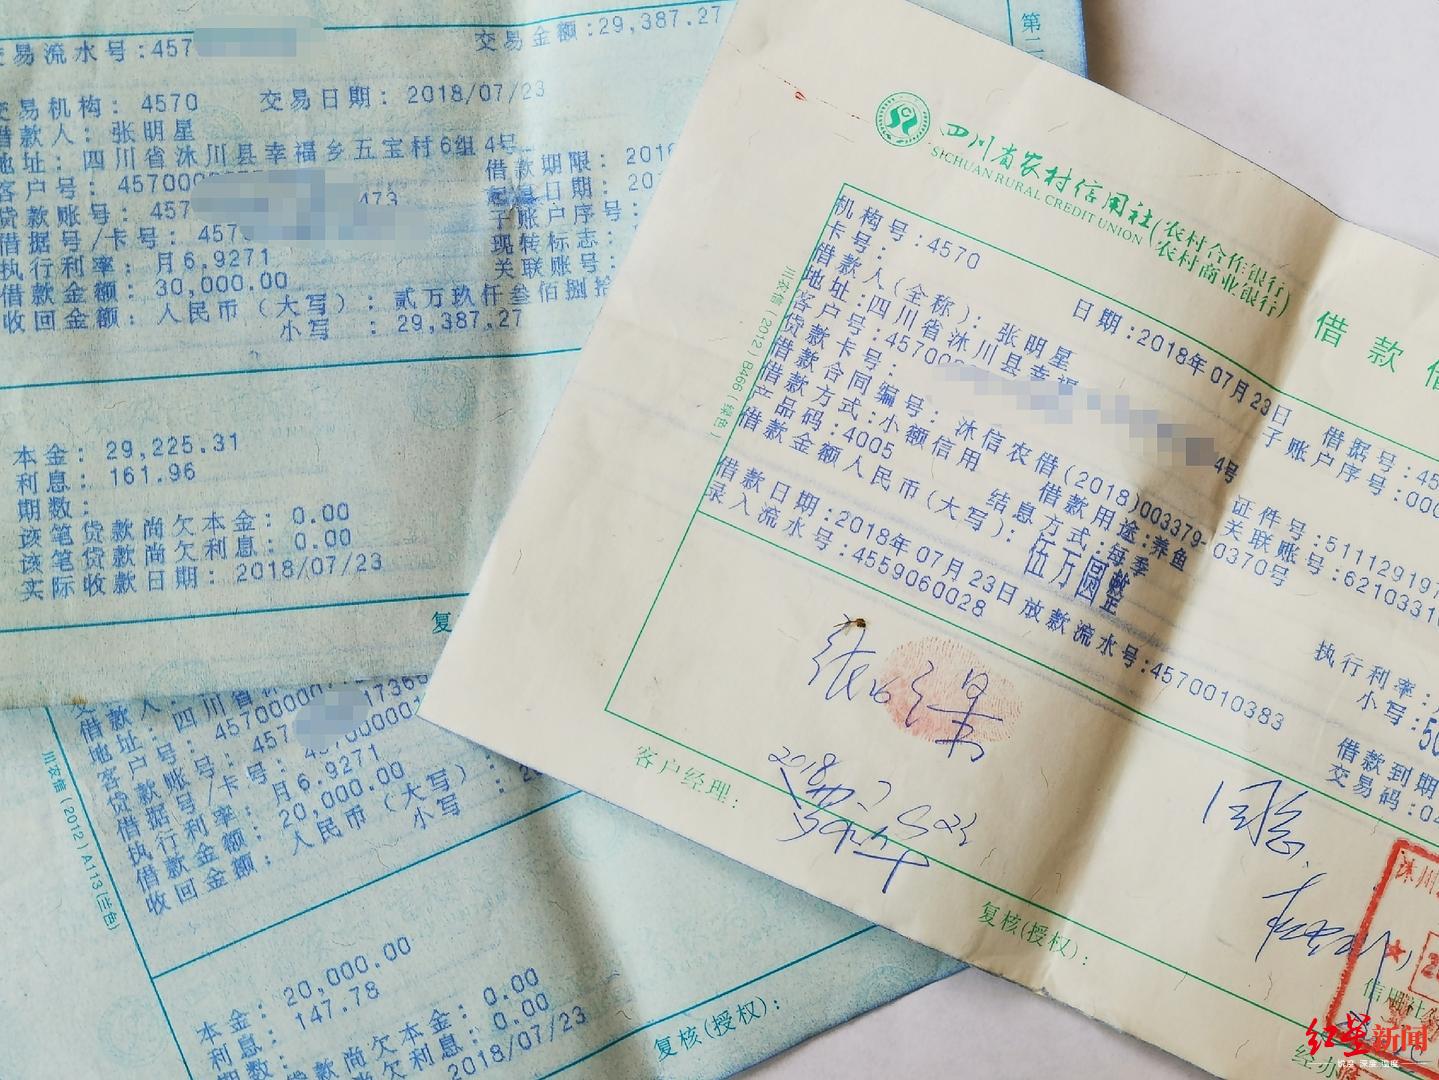 交易流水号:457
交易金额:29,387.27
第二
交易机构: 4570
交易日期: 2018/07/23
借款人: 张明星
地址: 四川省沐川县幸福乡五宝村6组 4号
借款期限: 201
客户号: 457000
起息日期: 20
贷款账号: 457 473
子账户序号:
借据号/卡号: 457
现转标志:
执行利率: 月6.9271
关联账号:
借款金额: 30,000.00
收回金额: 人民币(大写): 贰万玖仟叁佰捌拾
小写 : 29,387.27
本金: 29,225.31
利息: 161.96
期数:
该笔贷款尚欠本金: 0.00
该笔贷款尚欠利息: 0.00
实际收款日期: 2018/07/23
复
川农信(2012)A113(兰色)
借款人:
地址: 四川省
客户号: 4570000 1736
贷款账号: 457
借据号/卡号: 45700001
执行利率: 月6.9271
借款金额: 20,000.00
收回金额: 人民币(大写):
小写 : 20
本金: 20,000.00
利息: 147.78
期数:
该笔贷款尚欠本金: 0.00
0.00
2018/07/23
复核(授权):
四川省农村信用社(农村合作银行)
(农村商业银行)
SICHUAN RURAL CREDIT UNION
借款借
川农信(2012)B466(绿色)
机构号:4570
日期:2018年07月23日
借据号:45
卡号:
子账户序号:000
借款人(全称): 张明星
地址:四川省沐川县幸福 4号
证件号:51112919
客户号:45700
关联账号:6210331
贷款卡号:
借款合同编号: 沐信农借(2018)003379-0370号
借款方式:小额信用
借款用途:养鱼
执行利率:
产品码:4005
结息方式:每季
小写:50
借款金额人民币(大写): 伍万圆整
借款日期:2018年07月23日
放款流水号:4570010383
借款到期
录入流水号:4559060028
交易码:04
2018 7 23
客户经理:
复核(授权):
沐川
信用社
经办
红星新闻
锐度 深度 温度